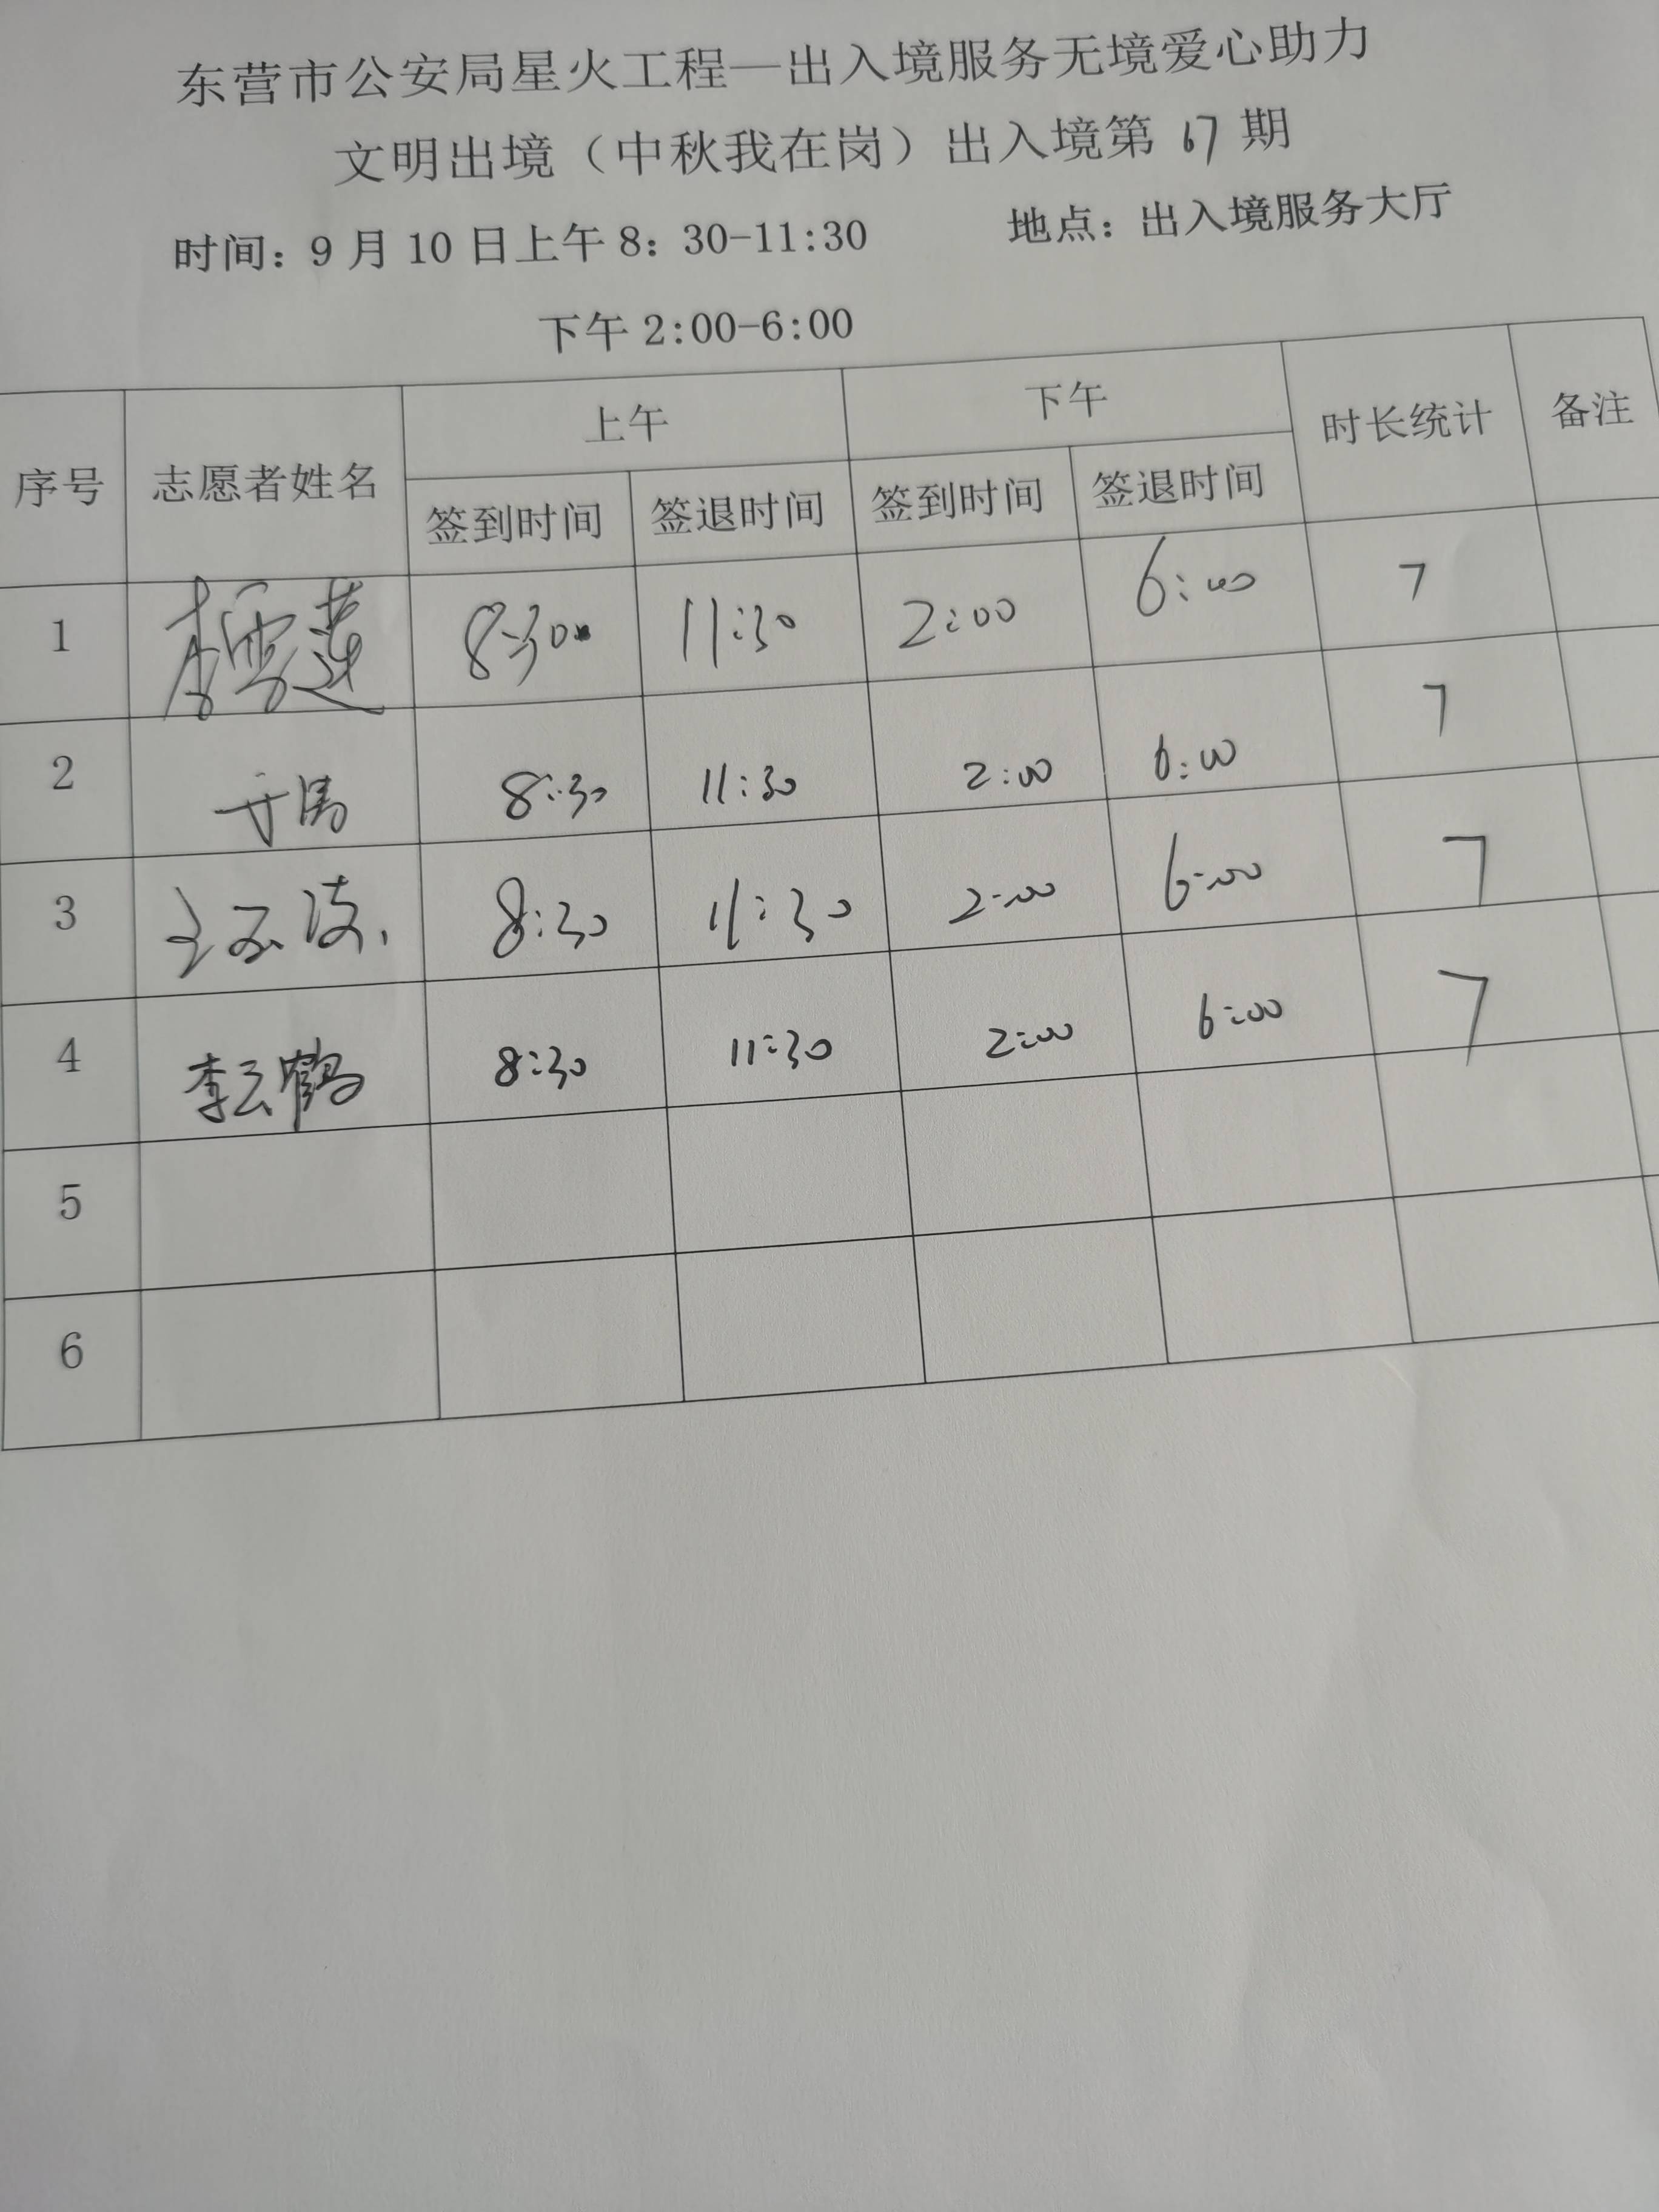 东营市公安局星火工程—出入境服务无境爱心助力
文明出境（中秋我在岗）出入境第 67 期
时间：9 月 10 日上午 8：30-11:30 地点：出入境服务大厅
下午 2:00-6:00
序号 志愿者姓名 上午 下午 时长统计 备注
签到时间 签退时间 签到时间 签退时间
1 李雪莲 8:30 11:30 2:00 6:00 7
2 8:30 11:30 2:00 6:00 7
3 8:30 11:30 2:00 6:00 7
4 李云鹤 8:30 11:30 2:00 6:00 7
5
6